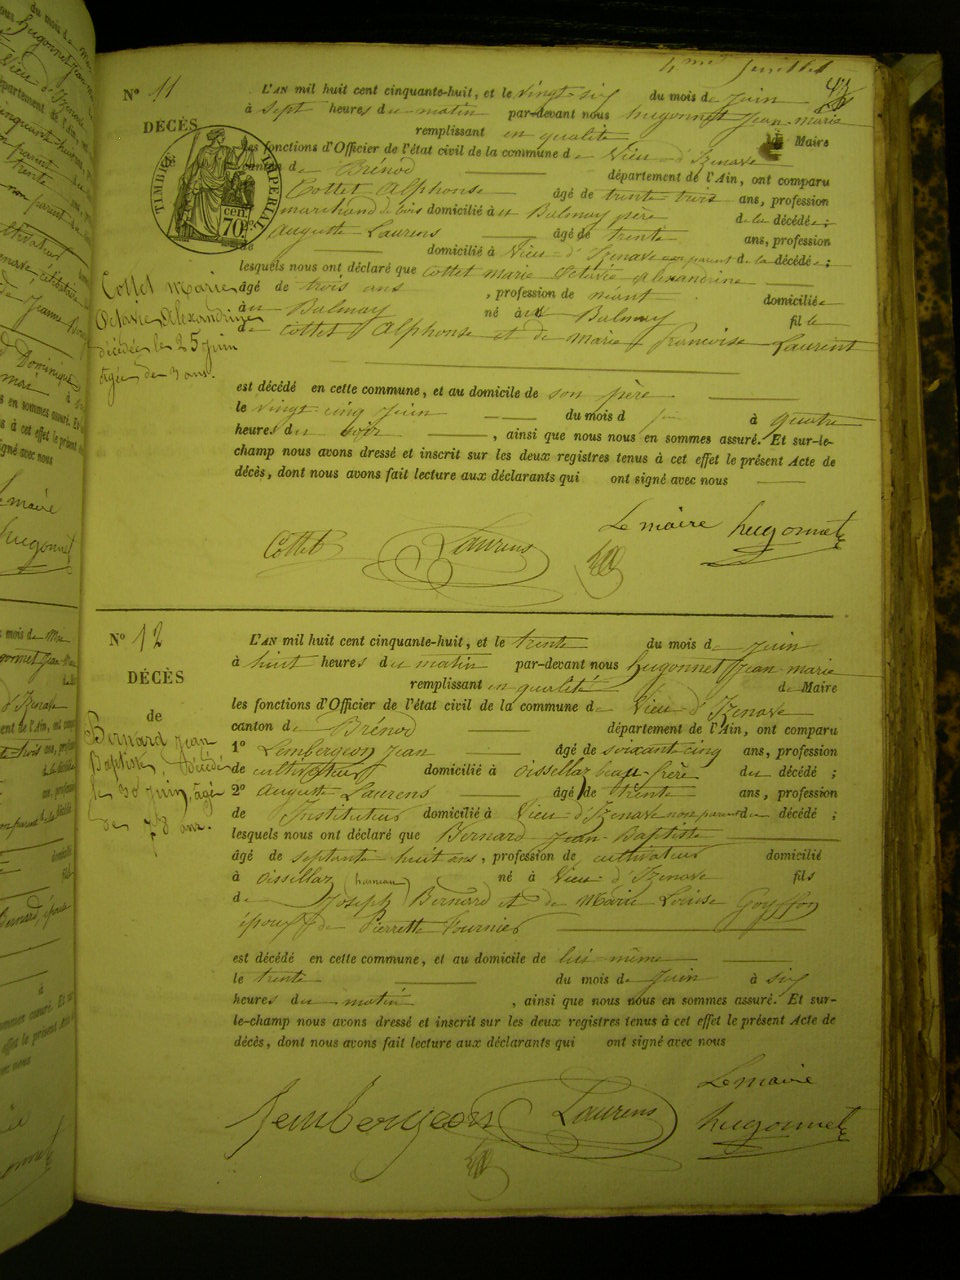 4me feuillet
N° 11
DÉCÈS
TIMBRE IMPÉRIAL
70 cen.
Cottet Marie
Octavie Alexandrine
décédée le 25 juin
âgée de 3 ans.
L'AN mil huit cent cinquante-huit, et le vingt-six du mois de juin
à sept heures du matin par-devant nous hugonnet Jean-marie
remplissant en qualité de Maire
les fonctions d'Officier de l'état civil de la commune de Vieu-d'Izenave
canton de Brénod département de l'Ain, ont comparu
Cottet Alphonse âgé de trente trois ans, profession
marchand de bois domicilié à Balmay père de la décédée ;
Auguste Laurens âgé de trente ans, profession
domicilié à Vieu-d'Izenave non parent de la décédée ;
lesquels nous ont déclaré que Cottet marie Octavie Alexandrine
âgée de trois ans , profession de néant domiciliée
au Balmay né à Balmay fille
de Cottet Alphonse et de marie françoise Laurent
est décédé en cette commune, et au domicile de son père
le vingt cinq juin du mois d juin à quatre
heures du soir , ainsi que nous nous en sommes assuré. Et sur-le-
champ nous avons dressé et inscrit sur les deux registres tenus à cet effet le présent Acte de
décès, dont nous avons fait lecture aux déclarants qui ont signé avec nous
Le maire hugonnet
Cottet Laurens
N° 12
DÉCÈS
de
Bernard Jean
Baptiste, décédé
le 30 juin, âgé
de 78 ans.
L'AN mil huit cent cinquante-huit, et le trente du mois de juin
à huit heures du matin par-devant nous hugonnet Jean-marie
remplissant en qualité de Maire
les fonctions d'Officier de l'état civil de la commune de Vieu-d'Izenave
canton de Brénod département de l'Ain, ont comparu
1° Lembergeon Jean âgé de soixante cinq ans, profession
de cultivateur domicilié à oissellaz beau-frère du décédé ;
2° Auguste Laurens âgé de trente ans, profession
de Instituteur domicilié à Vieu-d'Izenave non parent du décédé ;
lesquels nous ont déclaré que Bernard Jean-Baptiste
âgé de septante huit ans , profession de cultivateur domicilié
à oissillaz (hameau) né à Vieu-d'Izenave fils
de Joseph Bernard et de Marie Louise Goyffon
époux de Pierrette Fournier
est décédé en cette commune, et au domicile de lui-même
le trente du mois de juin à six
heures du matin , ainsi que nous nous en sommes assuré. Et sur-
le-champ nous avons dressé et inscrit sur les deux registres tenus à cet effet le présent Acte de
décès, dont nous avons fait lecture aux déclarants qui ont signé avec nous
Le maire
Jembergeon Laurens hugonnet